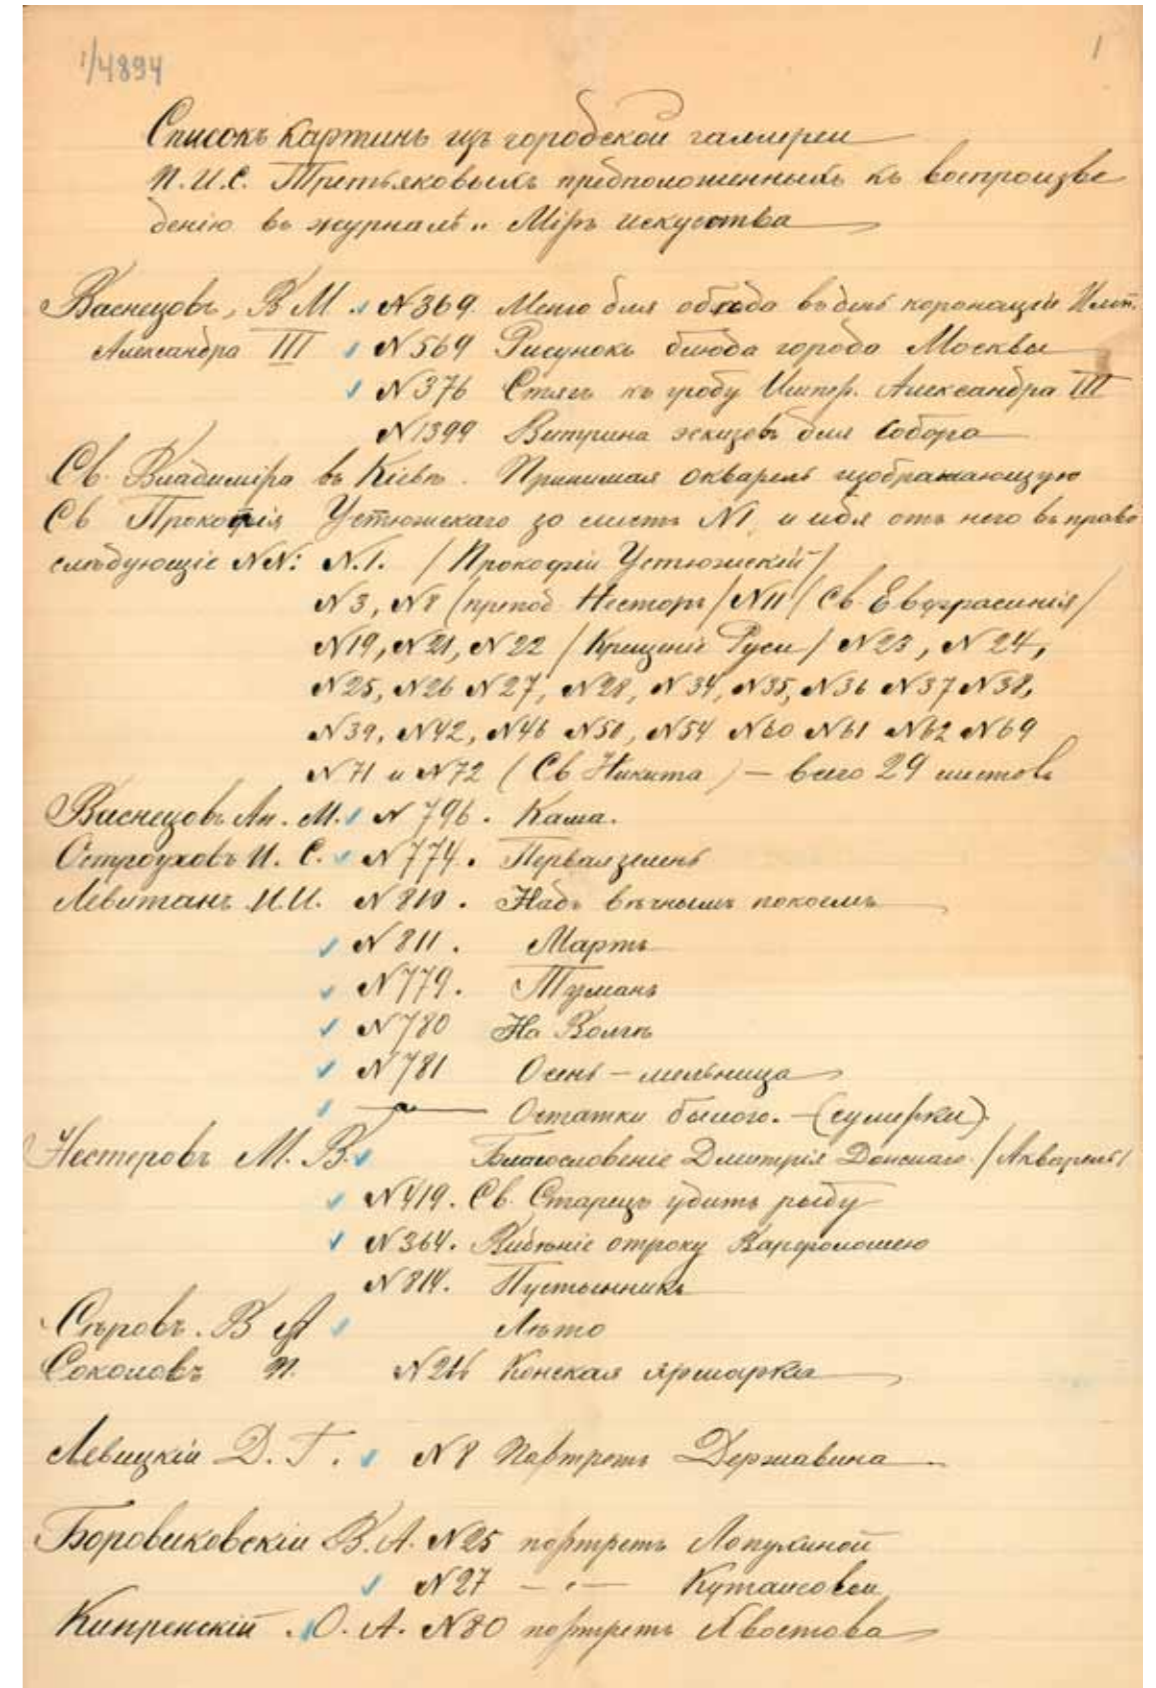 1/4894
1
Списокъ картинъ изъ городской галлереи
П. и С. Третьяковыхъ предположенныхъ къ воспроизве
денію въ журналѣ „Міръ искусства
Васнецовъ, В М № 369. Меню для обѣда въ день коронаціи Имп.
Александра III № 569 Рисунокъ блюда города Москвы
№ 376 Стягъ къ гробу Импер. Александра III
№ 1399 Витрина эскизовъ для Собора
Св. Владиміра въ Кіевѣ. Принимая акварель изображающую
Св Прокопія Устюжскаго за листъ №1, и идя отъ него въ право
слѣдующіе №№: №.1. /Прокофій Устюжскій/
№3, №8 (препод. Несторъ/ №11 / Св. Евфрасинія/
№19, №21, №22 /Крещеніе Руси/ №23, №24,
№25, №26 №27, №28, №34, №35, №36 №37 №38,
№39, №42, №46 №50, №54 №60 №61 №62 №69
№71 и №72 (Св Никита) — всего 29 листовъ
Васнецовъ Ап. М. № 796. Кама.
Остроуховъ И. С. № 774. Первая зелень
Левитанъ И. И. № 810. Надъ вѣчнымъ покоемъ
№ 811. Мартъ
№ 779. Туманъ
№ 780 На Волгѣ
№ 781 Осень – мельница
—„— Остатки былого. – (сумерки).
Нестеровъ М. В. Благословеніе Дмитрія Донскаго. /Акварель/
№ 419. Св. Старецъ удитъ рыбу
№ 364. Видѣніе отроку Варфоломею
№ 814. Пустынникъ
Сѣровъ. В А Лѣто
Соколовъ П. № 216 Конская ярмарка
Левицкій Д. Г. № 8 Портретъ Державина.
Боровиковскій В. А. № 25 портретъ Лопухиной
№ 27 — „ — Кутайсовой
Кипренскій О. А. № 80 портретъ Хвостова